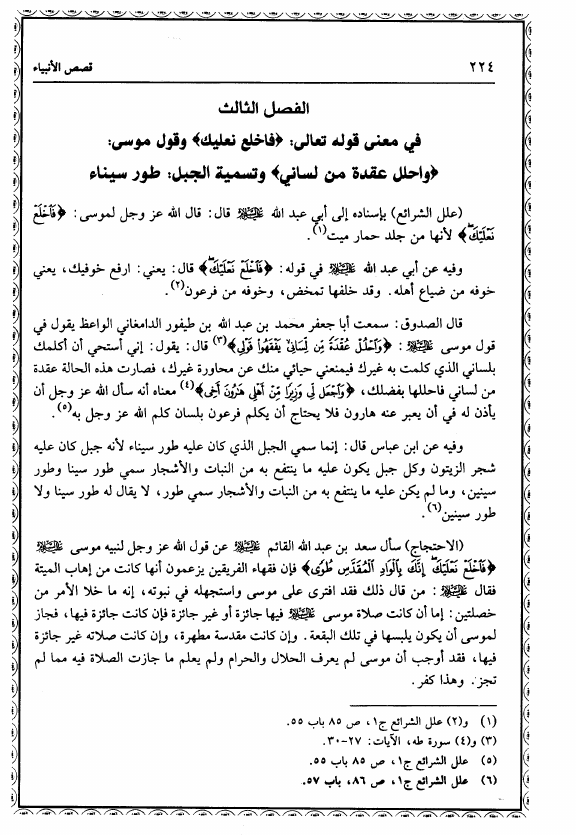 ٢٢٤ قصص الأنبياء
الفصل الثالث
في معنى قوله تعالى: ﴿فاخلع نعليك﴾ وقول موسى:
﴿واحلل عقدة من لساني﴾ وتسمية الجبل: طور سيناء
(علل الشرائع) بإسناده إلى أبي عبد الله عليه السلام قال: قال الله عز وجل لموسى: ﴿فَٱخْلَعْ
نَعْلَيْكَ﴾ لأنها من جلد حمار ميت(١).
وفيه عن أبي عبد الله عليه السلام في قوله: ﴿فَٱخْلَعْ نَعْلَيْكَ﴾ قال: يعني: ارفع خوفيك، يعني
خوفه من ضياع أهله. وقد خلفها تمخض، وخوفه من فرعون(٢).
قال الصدوق: سمعت أبا جعفر محمد بن عبد الله بن طيفور الدامغاني الواعظ يقول في
قول موسى عليه السلام: ﴿وَٱحْلُلْ عُقْدَةً مِّن لِّسَانِي يَفْقَهُوا۟ قَوْلِي﴾(٣) قال: يقول: إني أستحي أن أكلمك
بلساني الذي كلمت به غيرك فيمنعني حيائي منك عن محاورة غيرك، فصارت هذه الحالة عقدة
من لساني فاحللها بفضلك، ﴿وَٱجْعَل لِّي وَزِيرًا مِّنْ أَهْلِي هَٰرُونَ أَخِي﴾(٤) معناه أنه سأل الله عز وجل أن
يأذن له في أن يعبر عنه هارون فلا يحتاج أن يكلم فرعون بلسان كلم الله عز وجل به(٥).
وفيه عن ابن عباس قال: إنما سمي الجبل الذي كان عليه طور سيناء لأنه جبل كان عليه
شجر الزيتون وكل جبل يكون عليه ما ينتفع به من النبات والأشجار سمي طور سينا وطور
سينين، وما لم يكن عليه ما ينتفع به من النبات والأشجار سمي طور، لا يقال له طور سينا ولا
طور سينين(٦).
(الاحتجاج) سأل سعد بن عبد الله القائم عليه السلام عن قول الله عز وجل لنبيه موسى عليه السلام
﴿فَٱخْلَعْ نَعْلَيْكَ إِنَّكَ بِٱلْوَادِ ٱلْمُقَدَّسِ طُوًى﴾ فإن فقهاء الفريقين يزعمون أنها كانت من إهاب الميتة
فقال عليه السلام: من قال ذلك فقد افترى على موسى واستجهله في نبوته، إنه ما خلا الأمر من
خصلتين: إما أن كانت صلاة موسى عليه السلام فيها جائزة أو غير جائزة فإن كانت جائزة فيها، فجاز
لموسى أن يكون يلبسها في تلك البقعة. وإن كانت مقدسة مطهرة، وإن كانت صلاته غير جائزة
فيها، فقد أوجب أن موسى لم يعرف الحلال والحرام ولم يعلم ما جازت الصلاة فيه مما لم
تجز. وهذا كفر.
(١) و(٢) علل الشرائع ج١، ص ٨٥ باب ٥٥.
(٣) و(٤) سورة طه، الآيات: ٢٧-٣٠.
(٥) علل الشرائع ج١، ص ٨٥ باب ٥٥.
(٦) علل الشرائع ج١، ص ٨٦، باب ٥٧.